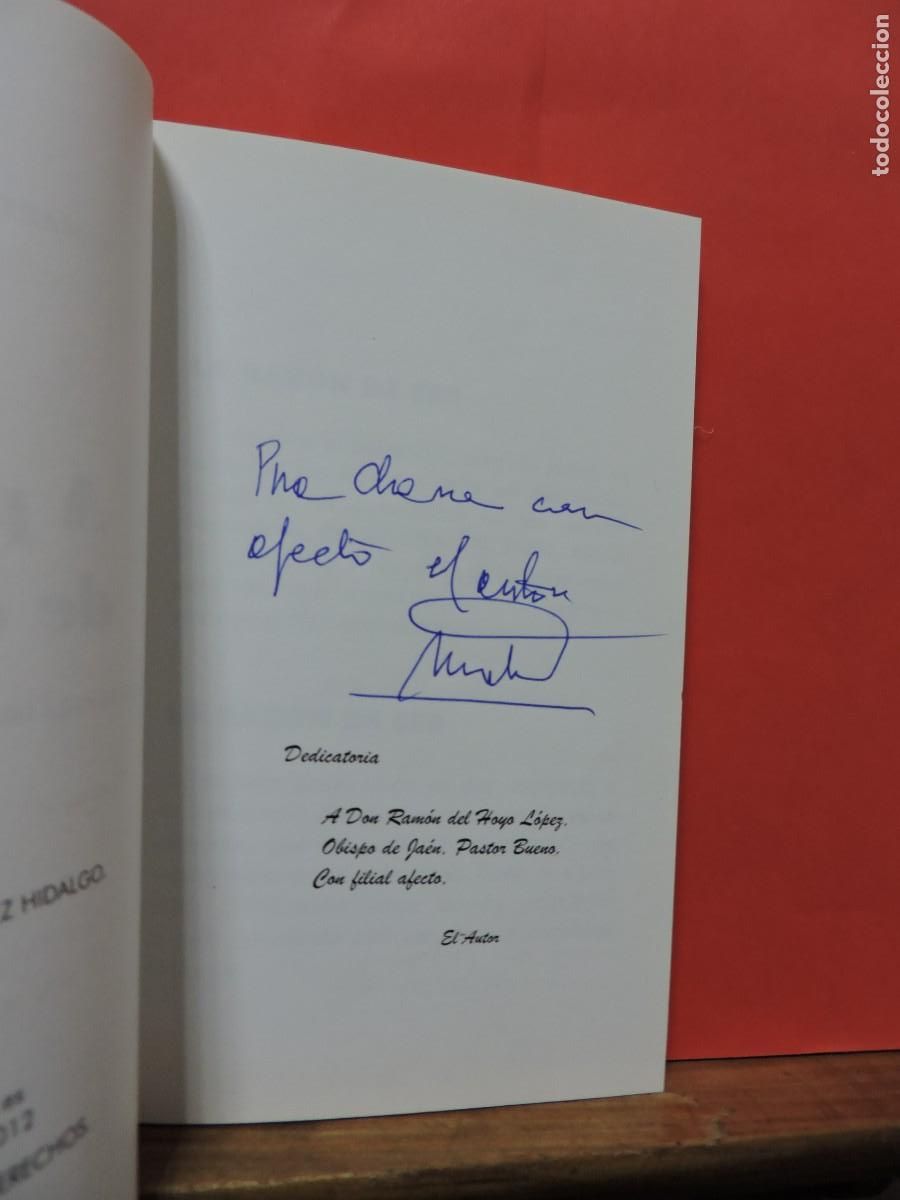 todocoleccion
con
afecto el autor
Dedicatoria
A Don Ramón del Hoyo López.
Obispo de Jaén. Pastor Bueno.
Con filial afecto.
El Autor
Z HIDALGO.
012
ERECHOS